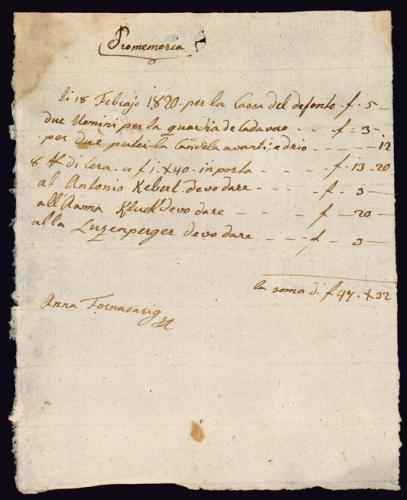 Promemoria
li 18 Febrajo 1820 per la Cassa del defonto . f . 5 –
due Uomini per la guardia de Cadavero - - - f - 3 -
per due puteli la Candela avanti e drio - - - 12
8 ℔ di Cera . a f 1 . x 40 . inporta - - - f - 13 - 20
al Antonio Kebert devo dare - - - f - 3 -
all Anna Kluck devo dare - - - - f - 20 -
alla Luzenperger devo dare - - - f - 3 -
la soma di f 47 . x 32
Anna Tornasarig